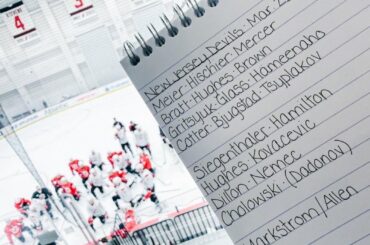 4
3
New Jersey Devils: Mar. 2
Meier·Hischier·Mercer
Bratt·Hughes·Brown
Gritsyuk·Glass·Hameenaho
Cotter·Bjugstad·Tsyplakov
Siegenthaler·Hamilton
Hughes·Kovacevic
Dillon·Nemec
Cholowski·(Dadonov)
Markstrom/Allen